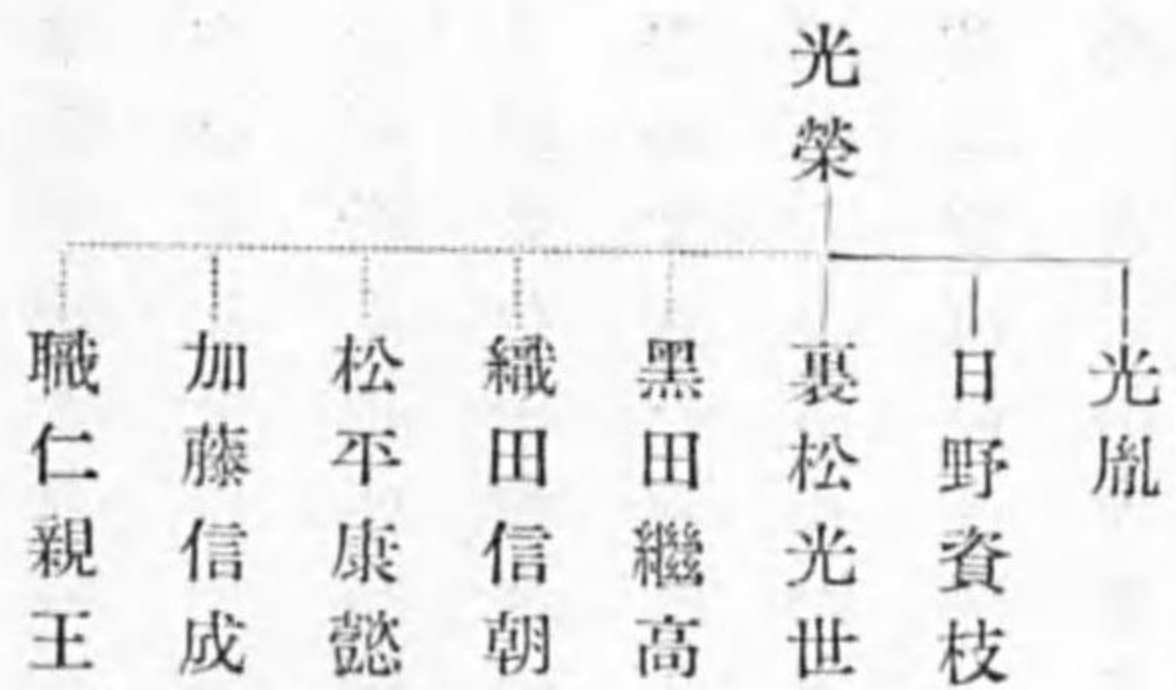 光榮
光胤
日野資枝
裏松光世
黑田繼高
織田信朝
松平康懿
加藤信成
職仁親王